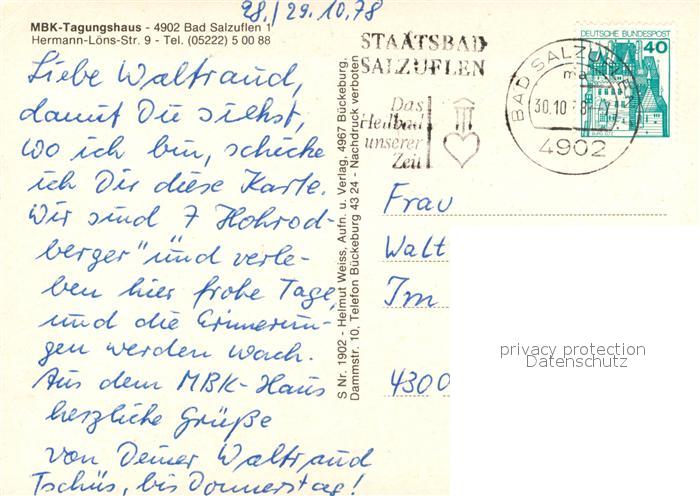 28./29.10.78
MBK-Tagungshaus - 4902 Bad Salzuflen 1
Hermann-Löns-Str. 9 - Tel. (05222) 5 00 88
Liebe Waltraud,
damit Du siehst,
wo ich bin, schicke
ich Dir diese Karte.
Wir sind 7 Hohrod-
berger" und verle-
ben hier frohe Tage,
und die Erinnerun-
gen werden wach.
Aus dem MBK-Haus
herzliche Grüße
von Deiner Waltraud
Tschüs, bis Donnerstag!
S Nr. 1902 - Helmut Weiss, Aufn. u. Verlag, 4967 Bückeburg,
Dammstr. 10, Telefon Bückeburg 43 24 - Nachdruck verboten
STAATSBAD
SALZUFLEN
Das
Heilbad
unserer
Zeit
BAD SALZUFLEN
ma
30.10.
4902
DEUTSCHE BUNDESPOST
40
Frau
Walt
Im
4300
privacy protection
Datenschutz